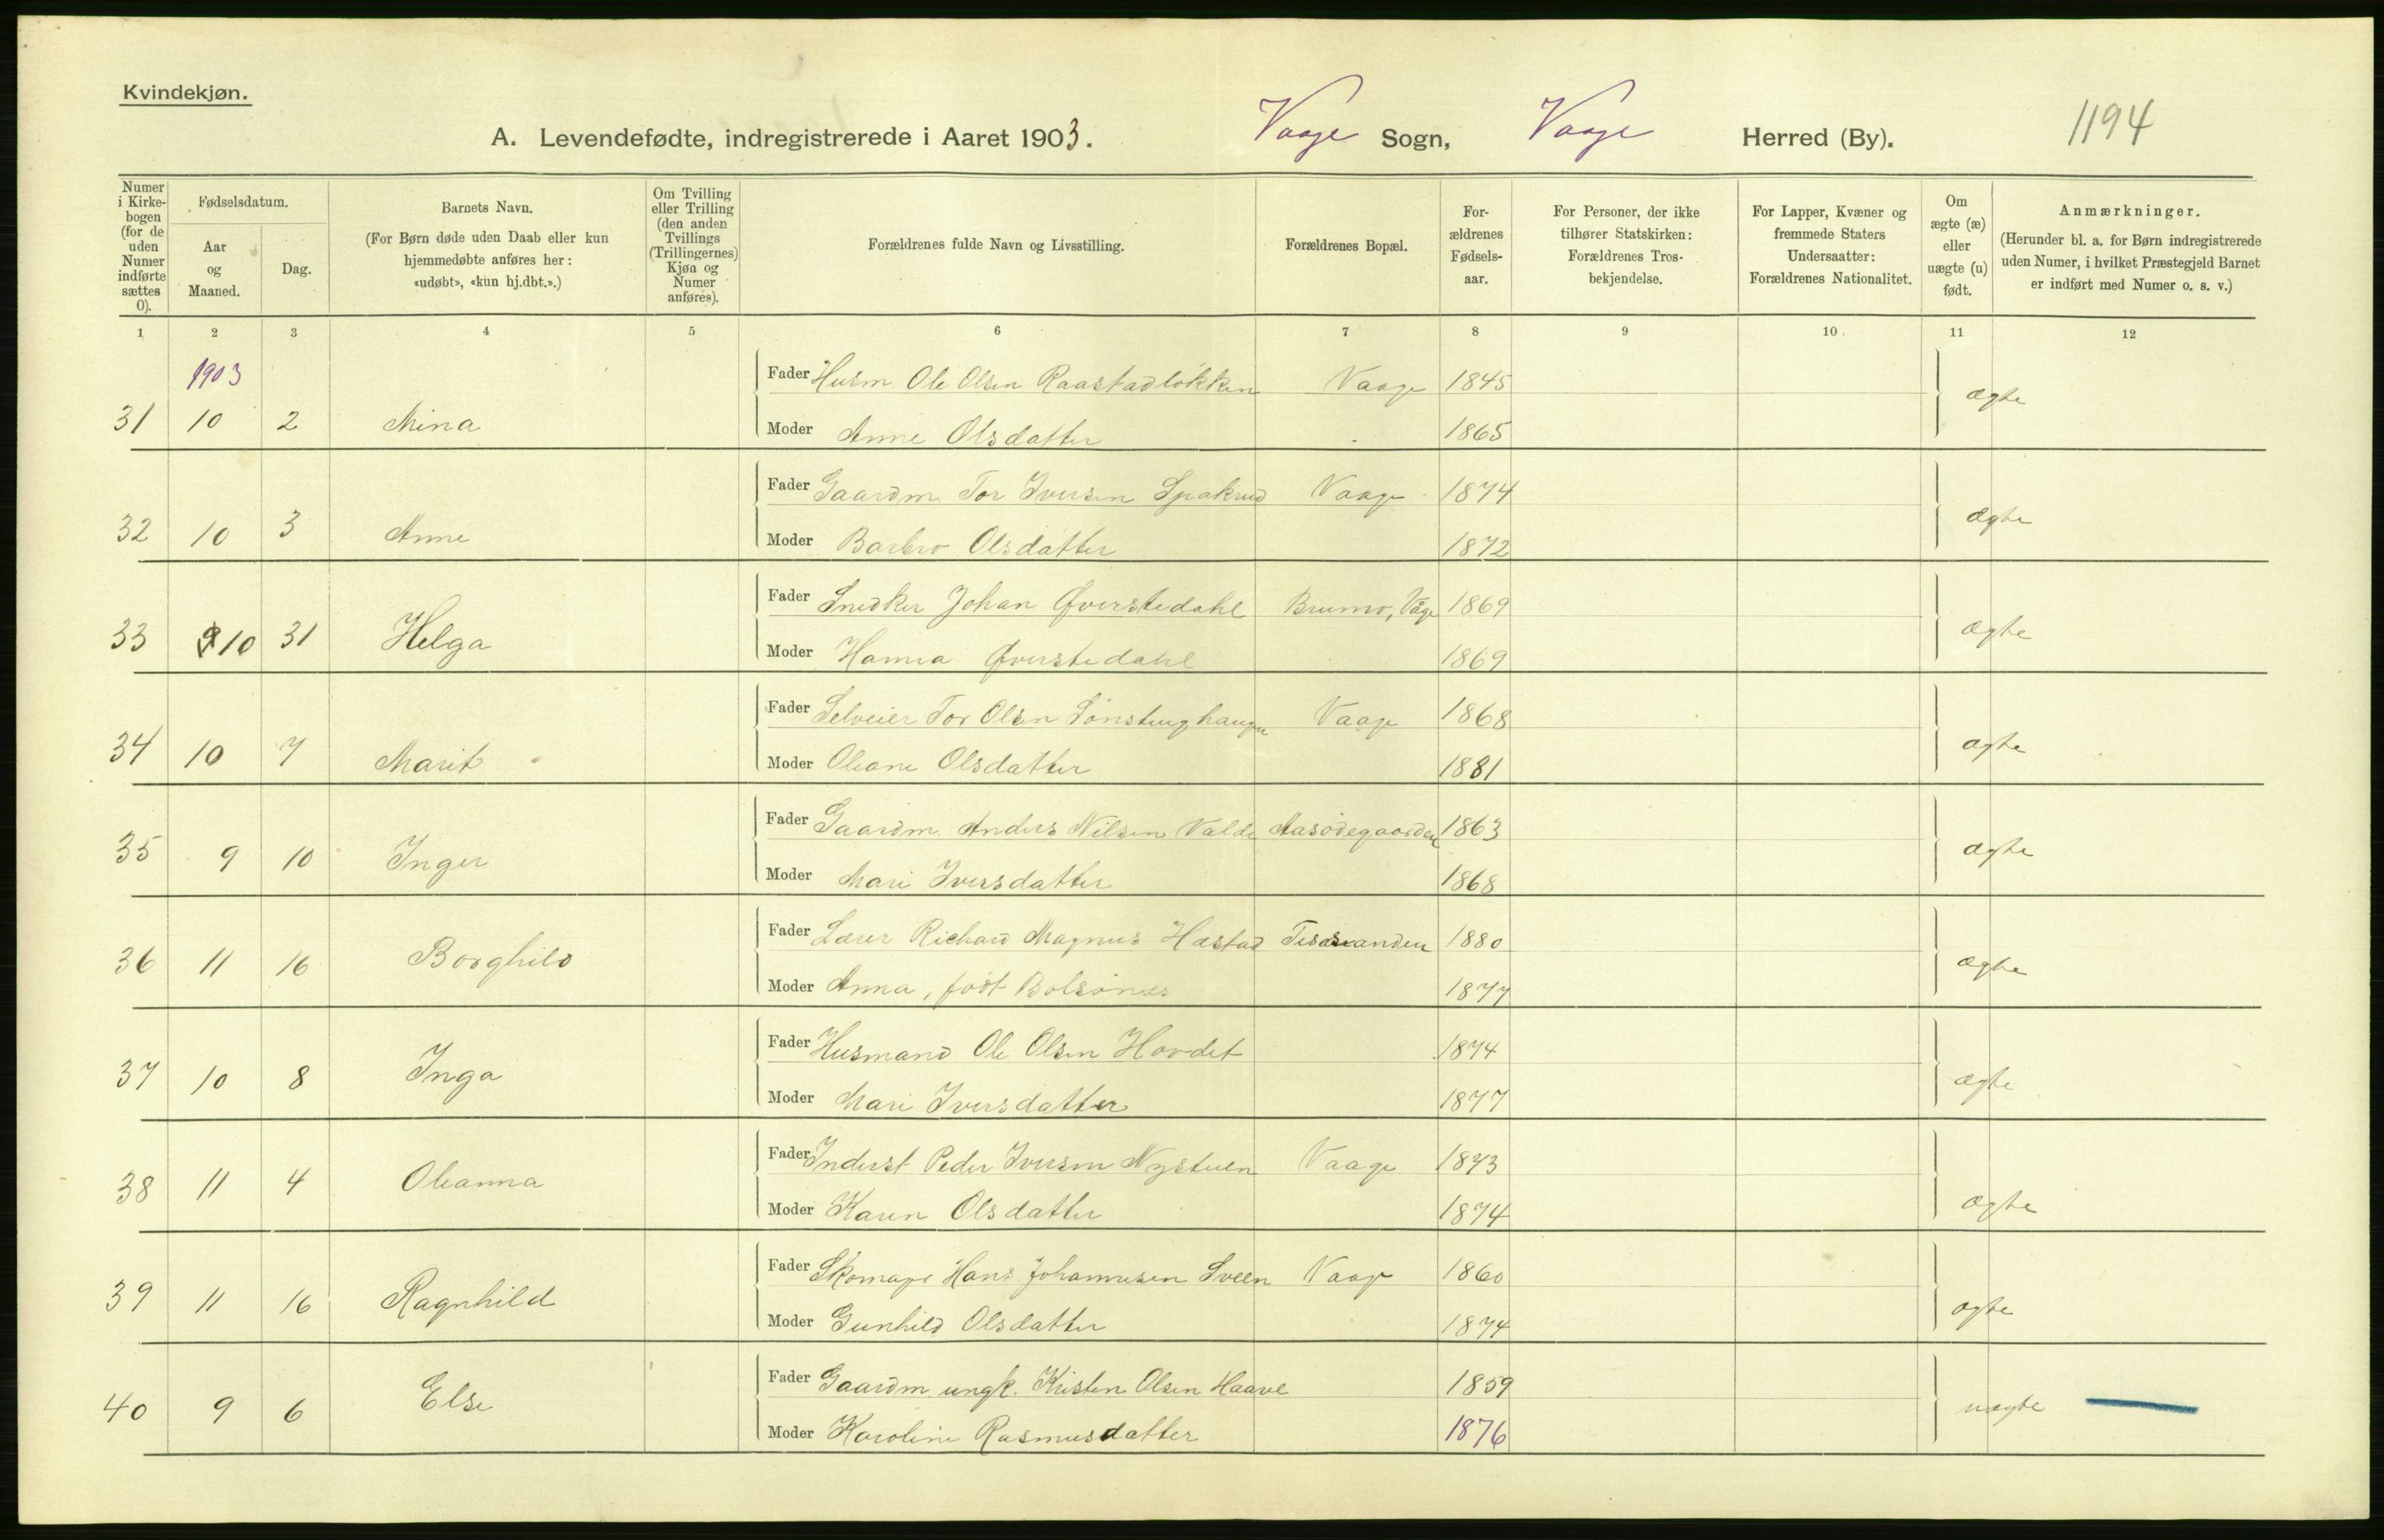 Kvindekjøn.
A. Levendefødte, indregistrerede i Aaret 1903. Vaage Sogn, Vaage Herred (By). 1194
Numer i Kirke-bogen (for de uden Numer indførte sættes 0).
Fødselsdatum.
Aar og Maaned.
Dag.
Barnets Navn.
(For Børn døde uden Daab eller kun hjemmedøbte anføres her: «udøbt», «kun hj.dbt.».)
Om Tvilling eller Trilling (den anden Tvillings (Trillingernes) Kjøn og Numer anføres).
Forældrenes fulde Navn og Livsstilling.
Forældrenes Bopæl.
For-ældrenes Fødsels-aar.
For Personer, der ikke tilhører Statskirken: Forældrenes Tros-bekjendelse.
For Lapper, Kvæner og fremmede Staters Undersaatter: Forældrenes Nationalitet.
Om ægte (æ) eller uægte (u) født.
Anmærkninger.
(Herunder bl. a. for Børn indregistrerede uden Numer, i hvilket Præstegjeld Barnet er indført med Numer o. s. v.)
1 2 3 4 5 6 7 8 9 10 11 12
1903
Fader Husm Ole Olsen Raastadløkken Vaage 1845
31 10 2 Mina ægte
Moder Anne Olsdatter 1865
Fader Gaardm. Tor Iversen Spakrud Vaage 1874
32 10 3 Anne ægte
Moder Barbro Olsdatter 1872
Fader Snedker Johan Øverstedahl Brumo, Våge 1869
33 10 31 Helga ægte
Moder Hanna Øverstedahl 1869
Fader Selveier Tor Olsen Vaage 1868
34 10 7 Marit ægte
Moder Oleane Olsdatter 1881
Fader Gaardm. Anders Nilsen Valde Aasødegaarden 1863
35 9 10 Inger ægte
Moder Mari Iversdatter 1868
Fader Lærer Richard Magnus Hastad Tessanden 1880
36 11 16 Borghild ægte
Moder Anna, født Bolsønes 1877
Fader Husmand Ole Olsen Hovdet 1874
37 10 8 Inga ægte
Moder Mari Iversdatter 1877
Fader Inderst Peder Iversen Nystuen Vaage 1873
38 11 4 Oleanna ægte
Moder Karen Olsdatter 1874
Fader Skomager Hans Johannesen Sveen Vaage 1860
39 11 16 Ragnhild ægte
Moder Gunhild Olsdatter 1874
Fader Gaardm. ungk. Kristen Olsen Haave 1859
40 9 6 Else uægte
Moder Karoline Rasmusdatter 1876